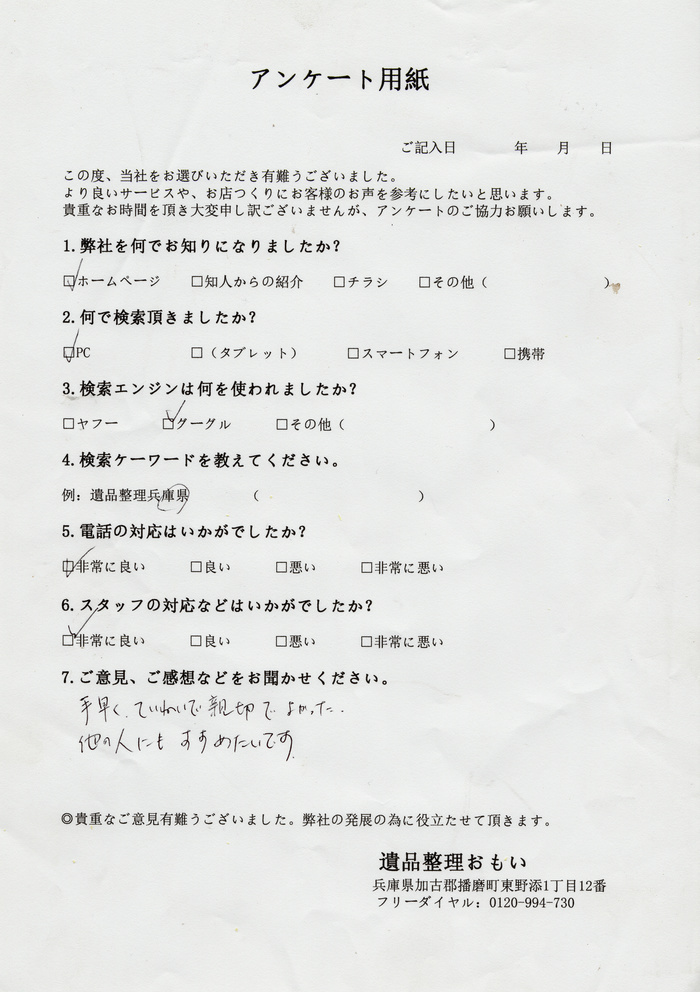 アンケート用紙
ご記入日 年 月 日
この度、当社をお選びいただき有難うございました。
より良いサービスや、お店つくりにお客様のお声を参考にしたいと思います。
貴重なお時間を頂き大変申し訳ございませんが、アンケートのご協力お願いします。
1.弊社を何でお知りになりましたか？
□ホームページ □知人からの紹介 □チラシ □その他（ ）
2.何で検索頂きましたか？
□PC □（タブレット） □スマートフォン □携帯
3.検索エンジンは何を使われましたか？
□ヤフー □グーグル □その他（ ）
4.検索ケーワードを教えてください。
例：遺品整理兵庫県 （ ）
5.電話の対応はいかがでしたか？
□非常に良い □良い □悪い □非常に悪い
6.スタッフの対応などはいかがでしたか？
□非常に良い □良い □悪い □非常に悪い
7.ご意見、ご感想などをお聞かせください。
手早く、ていねいで親切でよかった.
他の人にもすすめたいです.
◎貴重なご意見有難うございました。弊社の発展の為に役立たせて頂きます。
遺品整理おもい
兵庫県加古郡播磨町東野添1丁目12番
フリーダイヤル：0120-994-730